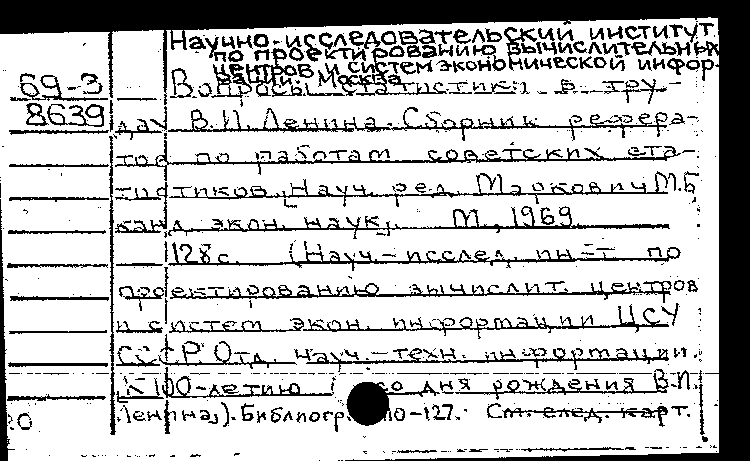 Научно-исследовательский институт
по проектированию вычислительных
центров и систем экономической инфор-
мации. Москва
69-3
Вопросы статистики в тру-
8639
дах В.И. Ленина. Сборник рефера-
тов по работам советских ста-
тистиков. [Науч. ред. Маркович М.Б
канд. экон. наук]. М., 1969
128 с. (Науч.-исслед. ин-т по
проектированию вычислит. центров
и систем экон. информации ЦСУ
СССР. Отд. науч.-техн. информации.
К 100-летию со дня рождения В.И.
Ленина). Библиогр. 110-127. См. след. карт.